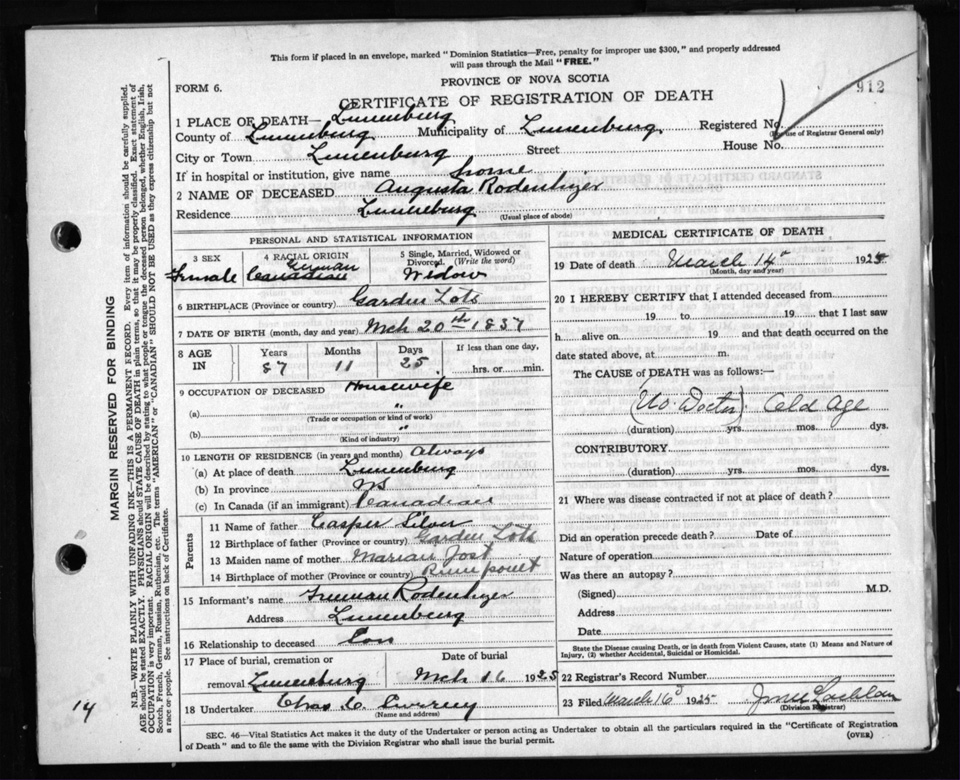 This form if placed in an envelope, marked "Dominion Statistics—Free, penalty for improper use $300," and properly addressed
will pass through the Mail "FREE."
FORM 6.
PROVINCE OF NOVA SCOTIA
912
CERTIFICATE OF REGISTRATION OF DEATH
1 PLACE OF DEATH— Lunenburg
County of Lunenburg Municipality of Lunenburg Registered No.
(For use of Registrar General only)
City or Town Lunenburg Street House No.
If in hospital or institution, give name home
2 NAME OF DECEASED Augusta Rodenhizer
Residence Lunenburg
(Usual place of abode)
PERSONAL AND STATISTICAL INFORMATION
3 SEX 4 RACIAL ORIGIN 5 Single, Married, Widowed or Divorced. (Write the word)
Female Canadian German Widow
6 BIRTHPLACE (Province or country) Garden Lots
7 DATE OF BIRTH (month, day and year) Mch 20th 1837
8 AGE IN Years Months Days If less than one day,
87 11 25 hrs. or min.
9 OCCUPATION OF DECEASED Housewife
(a) "
(Trade or occupation or kind of work)
(b) "
(Kind of industry)
10 LENGTH OF RESIDENCE (in years and months) Always
(a) At place of death Lunenburg
(b) In province NS
(c) In Canada (if an immigrant) Canadian
Parents
11 Name of father Casper Silver
12 Birthplace of father (Province or country) Garden Lots
13 Maiden name of mother Jost
14 Birthplace of mother (Province or country)
15 Informant's name Freeman Rodenhizer
Address Lunenburg
16 Relationship to deceased Son
17 Place of burial, cremation or removal Lunenburg
Date of burial Mch 16 1925
18 Undertaker Chas
(Name and address)
MEDICAL CERTIFICATE OF DEATH
19 Date of death March 14 1925
(Month, day and year)
20 I HEREBY CERTIFY that I attended deceased from
19 to 19 that I last saw
h alive on 19 and that death occurred on the
date stated above, at m.
The CAUSE of DEATH was as follows:—
(No Doctor) Old Age
(duration) yrs. mos. dys.
CONTRIBUTORY
(duration) yrs. mos. dys.
21 Where was disease contracted if not at place of death?
Did an operation precede death? Date of
Nature of operation
Was there an autopsy?
(Signed) M.D.
Address
Date
State the Disease causing Death, or in death from Violent Causes, state (1) Means and Nature of
Injury, (2) whether Accidental, Suicidal or Homicidal.
22 Registrar's Record Number
23 Filed March 16 1925
(Division Registrar)
SEC. 46—Vital Statistics Act makes it the duty of the Undertaker or person acting as Undertaker to obtain all the particulars required in the "Certificate of Registration
of Death" and to file the same with the Division Registrar who shall issue the burial permit. (OVER)
MARGIN RESERVED FOR BINDING
N.B.—WRITE PLAINLY WITH UNFADING INK—THIS IS A PERMANENT RECORD. Every item of information should be carefully supplied.
AGE should be stated EXACTLY. PHYSICIANS should STATE CAUSE OF DEATH in plain terms, so that it may be properly classified. Exact statement of
OCCUPATION is very important. RACIAL ORIGIN will be described by stating to what people or tongue the deceased person belonged, whether English, Irish,
Scotch, French, German, Russian, Ruthenian, etc. The terms "AMERICAN" or "CANADIAN" SHOULD NOT BE USED as they express citizenship but not
a race or people. See instructions on back of Certificate.
14